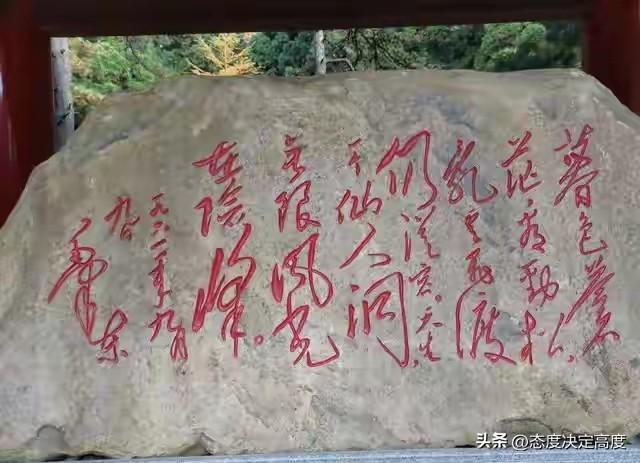 暮色苍
茫看劲松，
乱云飞渡
仍從容。天生
一个仙人洞，
無限風光
在险峰。
一九六一年九月
九日
毛泽东
头条 @态度决定高度